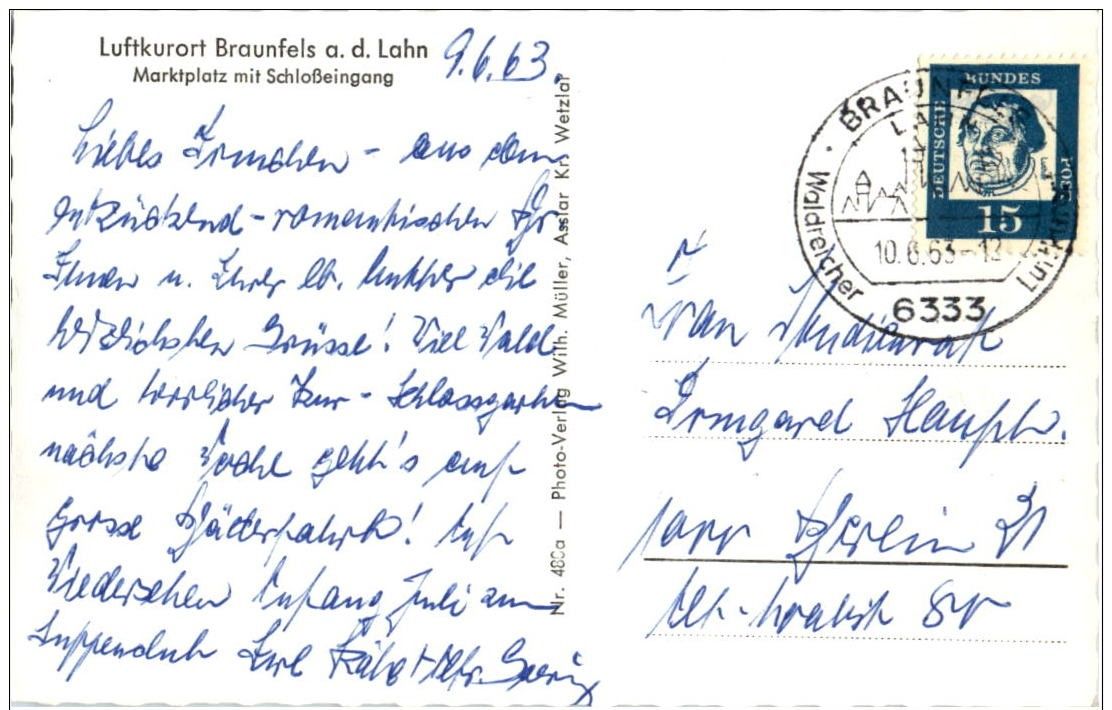 Luftkurort Braunfels a. d. Lahn
Marktplatz mit Schloßeingang
9.6.63.
Liebes Irmchen - aus dem
entzückend-romantischen Ort
Ihnen u. Ihrer lb. Mutter die
herzlichsten Grüsse! Viel Wald
und herrlicher Kur- Schlossgarten
nächste Woche geht's auf
grosse Bäderfahrt! Auf
Wiedersehen Anfang Juli zum
Nr. 480a — Photo-Verlag Wilh. Müller, Asslar Krs Wetzlar
DEUTSCHE
BUNDES
POST
15
BRAUNFELS
LAHN
Waldreicher
Luftkurort
10.6.63-12
6333
Frau Studienrat
Irmgard Haupt.
Berlin 21
Alt-Moabit